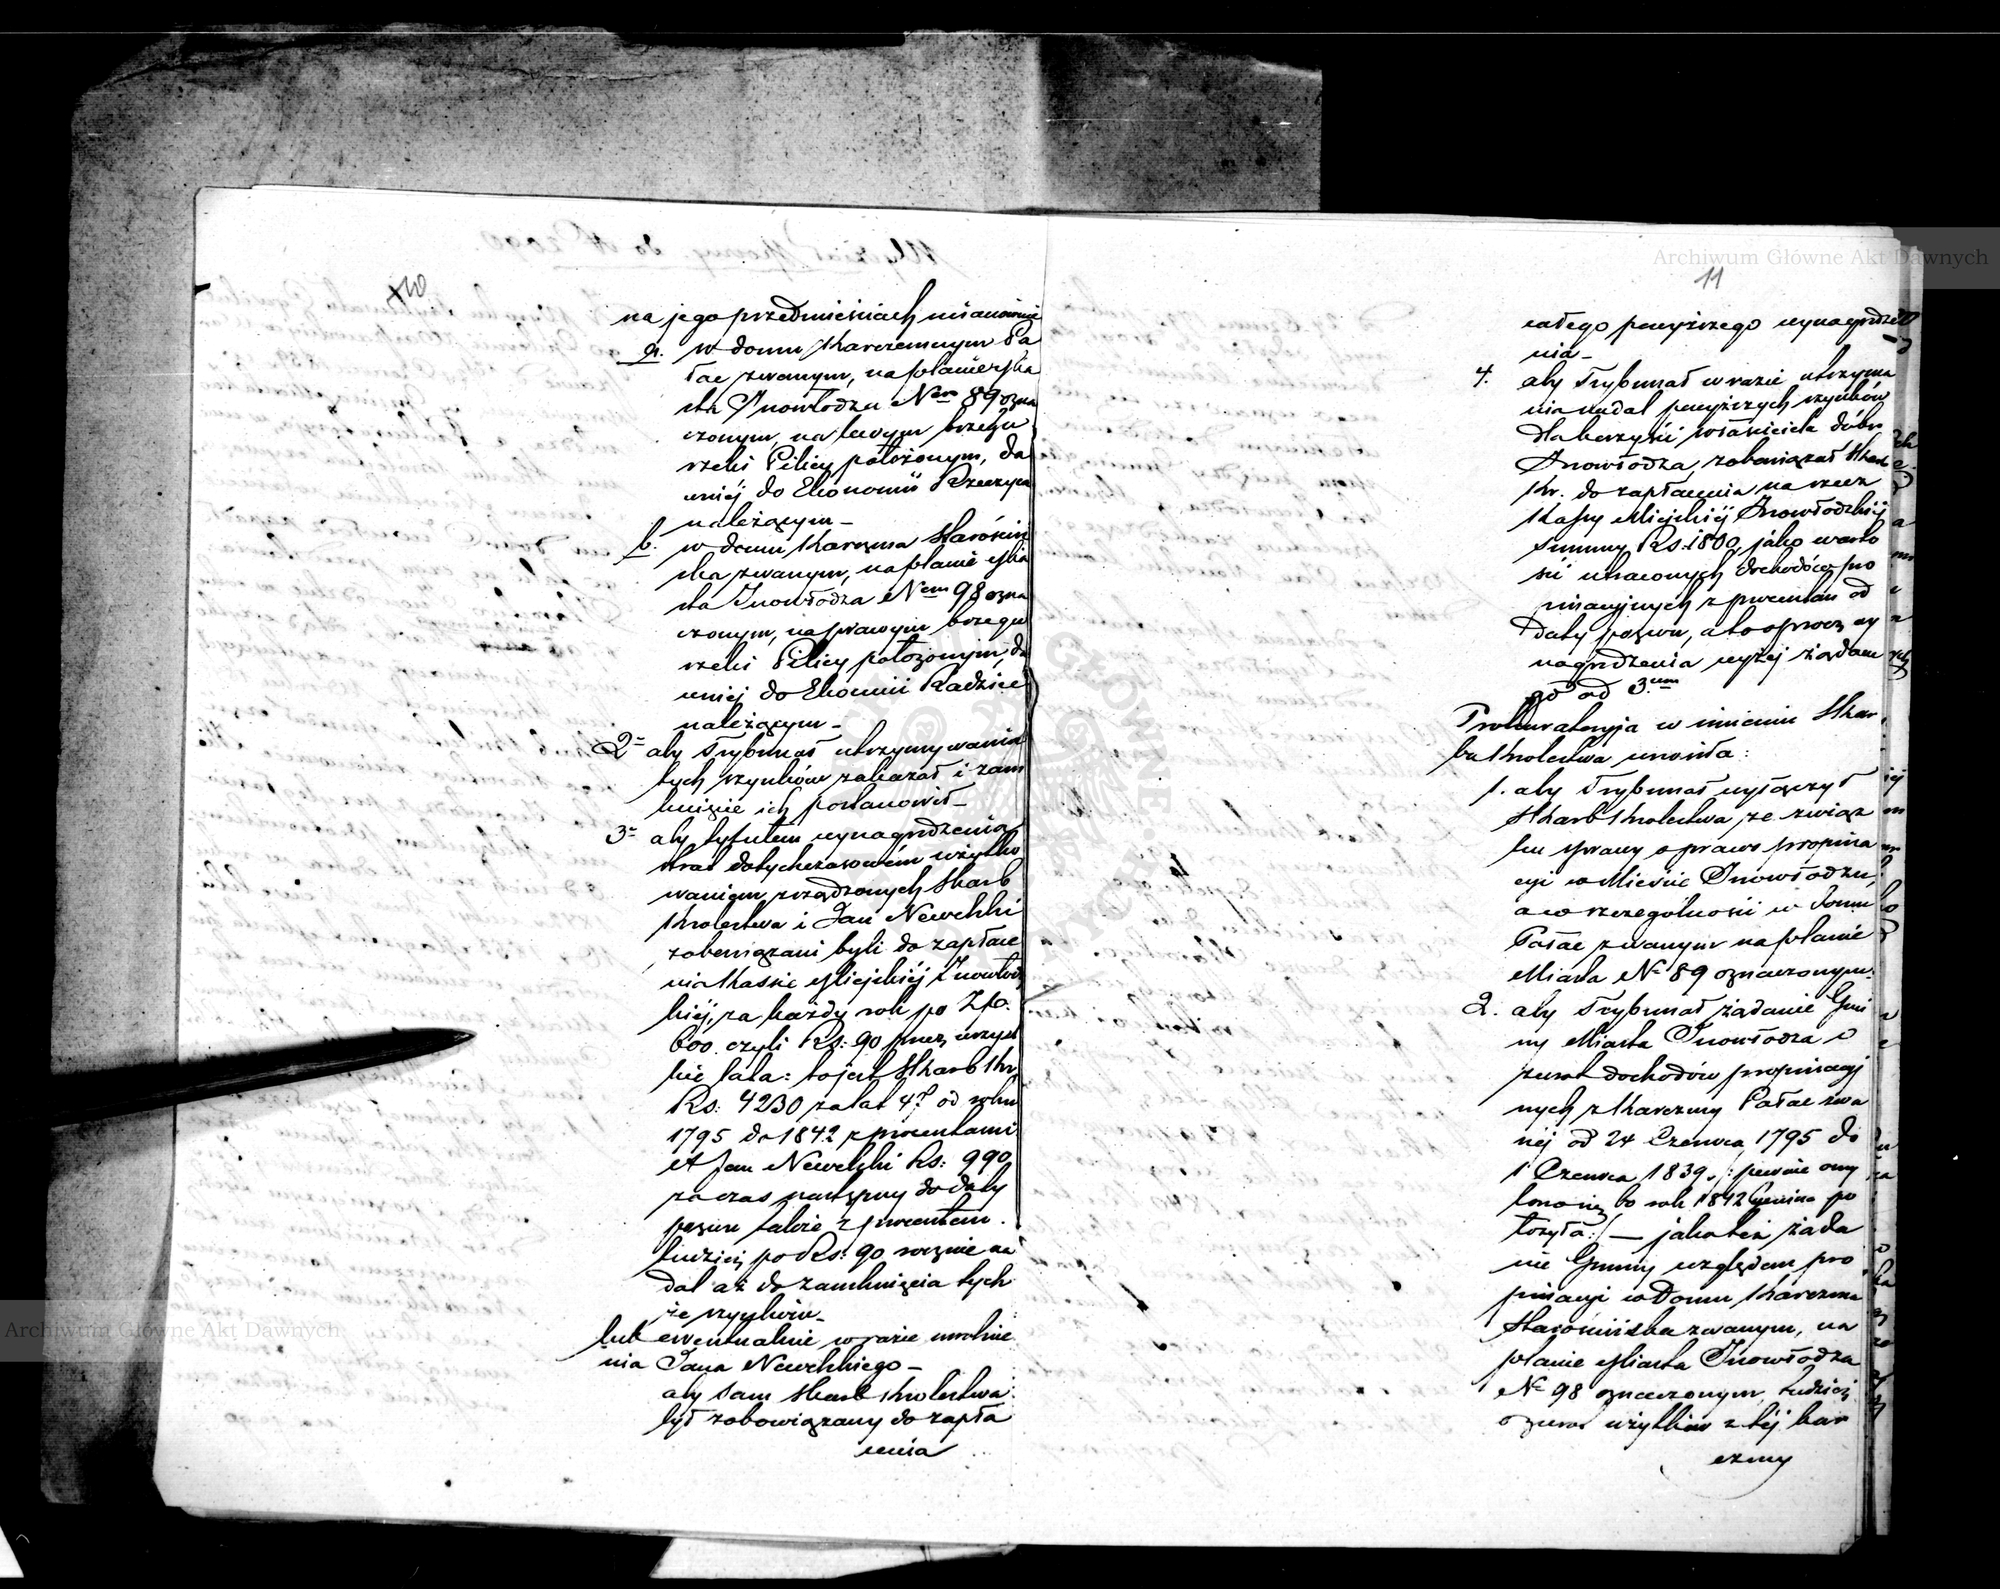 10
na jego przedmieściach mianowicie
a. w domu Karczemnym Pa
łac zwanym, na planie Mia
sta Inowłodza Nem 89 ozna
czonym, na lewym brzegu
rzeki Pilicy położonym, da
wniéj do Ekonomii Rzeczyca
należącym –
b. w domu Karczma Starościń
ska zwanym, na planie Mia
sta Inowłodza Nem 98 ozna
czonym, na prawym brzegu
rzeki Pilicy położonym, da
wniej do Ekonomii Radzice
należącym –
2= aby Trybunał utrzymywania
tych szynków zakazał i zam
knięcie ich postanowił –
3= aby tytułem wynagrodzenia
strat dotychczasowém użytko
waniem zrządzonych Skarb
Królestwa i Jan Newelski
zobowiązani byli do zapłace
nia Kassie Miejskiéj Inowłodz
kiéj, za każdy rok po Złp.
600. czyli Rs: 90 przez wszyst
kie lata: to jest Skarb Kr.
Rs: 4230 za lat 47 od roku
1795 do 1842 z procentami
A Jan Newelski Rs: 990
za czas następny do daty
pozwu także z procentem.
tudzież po Rs: 90 rocznie na
dal aż do zamknięcia tych
że szynków –
lub ewentualnie w razie uwolnie
nia Jana Newelskiego –
aby sam Skarb Królestwa
był zobowiązany do zapła
cenia
11
całego powyższego wynagrodze
nia –
4. aby Trybunał w razie utrzyma
nia nadal powyższych szynków
dla korzyści właściciela dóbr
Inowłodza, zobowiązał Skarb
Kr. do zapłacenia na rzecz
Kassy Miejskiéj Inowłodzkiéj
Summy Rs: 1800, jako warto
ści utraconych dochodów pro
pinacyjnych z procentem od
daty pozwu, a to oprócz wy
nagrodzenia wyżej żądane
go ad 3.um
Prokuratorya w imieniu Skar
bu Królestwa wnosiła:
1. aby Trybunał wyłączył
Skarb Królestwa ze związ
ku sprawy o prawo propina
cyi w Mieście Inowłodzu,
a w szczególności w domu
Pałac zwanym na planie
Miasta No 89 oznaczonym.
2. aby Trybunał żądanie Gmi
ny Miasta Inowłodza o
zwrot dochodów propinacyj
nych z Karczmy Pałac zwa
néj od 24 Czerwca 1795 do
1 Czerwca 1839. /: pewnie omy
łono się bo rok 1842 Gmina po
łożyła :/ — jako też żąda
nie Gminy względem pro
pinacyi w Domu Karczma
Starościńska zwanym, na
planie Miasta Inowłodza
No 98 oznaczonym, tudzież
o zwrot użytków z téj kar
czmy
Archiwum Główne Akt Dawnych
Archiwum Główne Akt Dawnych